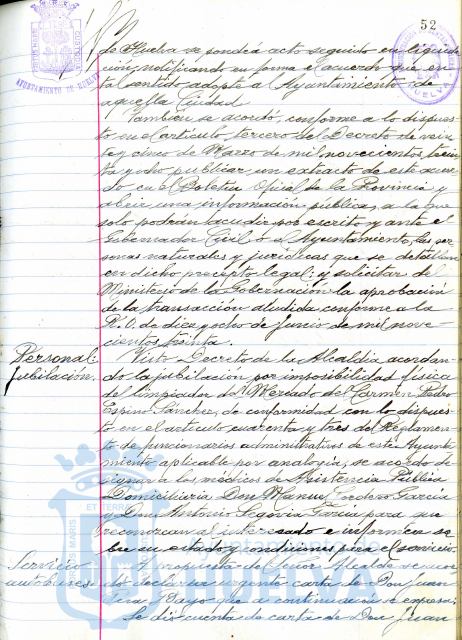 52
AYUNTAMIENTO DE HUELVA
de Huelva se pondrá acto seguido en liquida-
ción, notificando en forma el acuerdo que en
tal sentido adopte el Ayuntamiento de
aquella Ciudad
También se acordó, conforme a lo dispues-
to en el artículo tercero del Decreto de vein-
te y cinco de Marzo de mil novecientos trein-
ta y ocho publicar un extracto de este acuer-
do en el Boletín Oficial de la Provincia y
abrir una información pública, a la que
solo podrán acudir por escrito y ante el
Gobernador Civil ó el Ayuntamiento, las per-
sonas naturales y jurídicas que se detallan
en dicho precepto legal; y solicitar del
Ministerio de la Gobernación la aprobación
de la transacción aludida conforme a la
R. O. de diez y ocho de Junio de mil nove-
cientos treinta.
Personal:
Jubilación.
Visto Decreto de la Alcaldía acordan-
do la jubilación por imposibilidad física
del limpiador del Mercado del Carmen Pedro
Espina Sánchez, de conformidad con lo dispues-
to en el artículo cuarenta y tres del Reglamen-
to de funcionarios administrativos de este Ayunta-
miento aplicable por analogía, se acordó de-
signar a los médicos de Asistencia Pública
Domiciliaria Don Manuel Cordero García
y Don Antonio Segovia García para que
reconozcan al interesado e informen so-
bre su estado y condiciones para el servicio.
Servicio
autobuses
A propuesta del Señor Alcalde se acor-
dó declarar urgente carta de Don Juan
que a continuación se expresa:
Se dió cuenta de carta de Don Juan